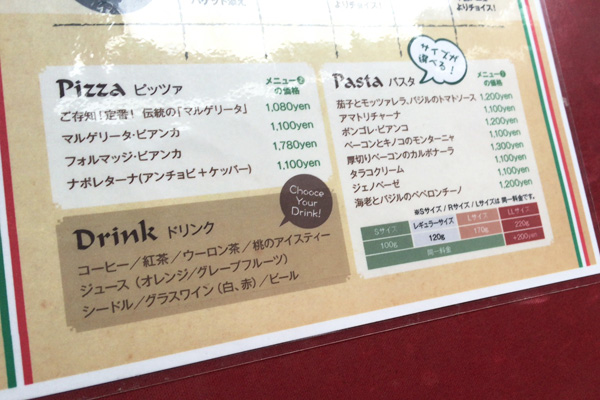 バケット添え
よりチョイス!
よりチョイス!
Pizza ピッツァ
メニュー❷
の価格
ご存知!定番! 伝統の「マルゲリータ」 1,080yen
マルゲリータ・ビアンカ 1,100yen
フォルマッジ・ビアンカ 1,780yen
ナポレターナ(アンチョビ+ケッパー) 1,100yen
サイズが
選べる!
Pasta パスタ
メニュー❷
の価格
茄子とモッツァレラ、バジルのトマトソース 1,200yen
アマトリチャーナ 1,100yen
ボンゴレ・ビアンコ 1,200yen
ベーコンとキノコのモンターニャ 1,100yen
厚切りベーコンのカルボナーラ 1,300yen
タラコクリーム 1,100yen
ジェノベーゼ 1,100yen
海老とバジルのペペロンチーノ 1,200yen
※Sサイズ/Rサイズ/Lサイズは同一料金です。
Sサイズ レギュラーサイズ Lサイズ LLサイズ
100g 120g 170g 220g
同一料金 +200yen
Chooce
Your
Drink!
Drink ドリンク
コーヒー/紅茶/ウーロン茶/桃のアイスティー
ジュース(オレンジ/グレープフルーツ)
シードル/グラスワイン(白、赤)/ビール